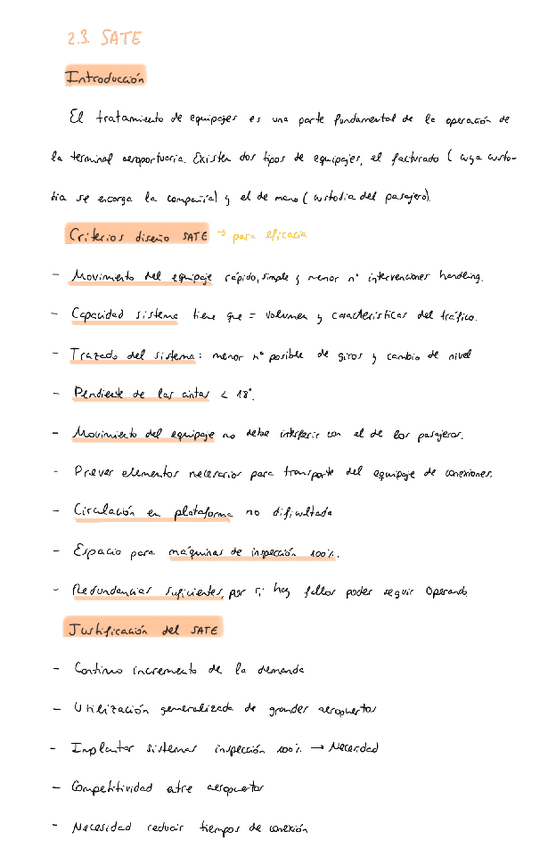 2.3. SATE
Introducción
El tratamiento de equipajes es una parte fundamental de la operación de
la terminal aeroportuaria. Existen dos tipos de equipajes, el facturado ( cuya custo-
dia se encarga la compañía) y el de mano ( custodia del pasajero).
Criterios diseño SATE → para eficacia
- Movimiento del equipaje rápido, simple y menor nº intervenciones handling.
- Capacidad sistema tiene que = volumen y características del tráfico.
- Trazado del sistema: menor nº posible de giros y cambio de nivel
- Pendiente de las cintas < 18°.
- Movimiento del equipaje no debe interferir con el de los pasajeros.
- Prever elementos necesarios para transporte del equipaje de conexiones.
- Circulación en plataforma no dificultada
- Espacio para máquinas de inspección 100%.
- Redundancias suficientes, por si hay fallos poder seguir operando.
Justificación del SATE
- Continuo incremento de la demanda
- Utilización generalizada de grandes aeropuertos
- Implantar sistemas inspección 100% → Necesidad
- Competitividad entre aeropuertos
- Necesidad reducir tiempos de conexión